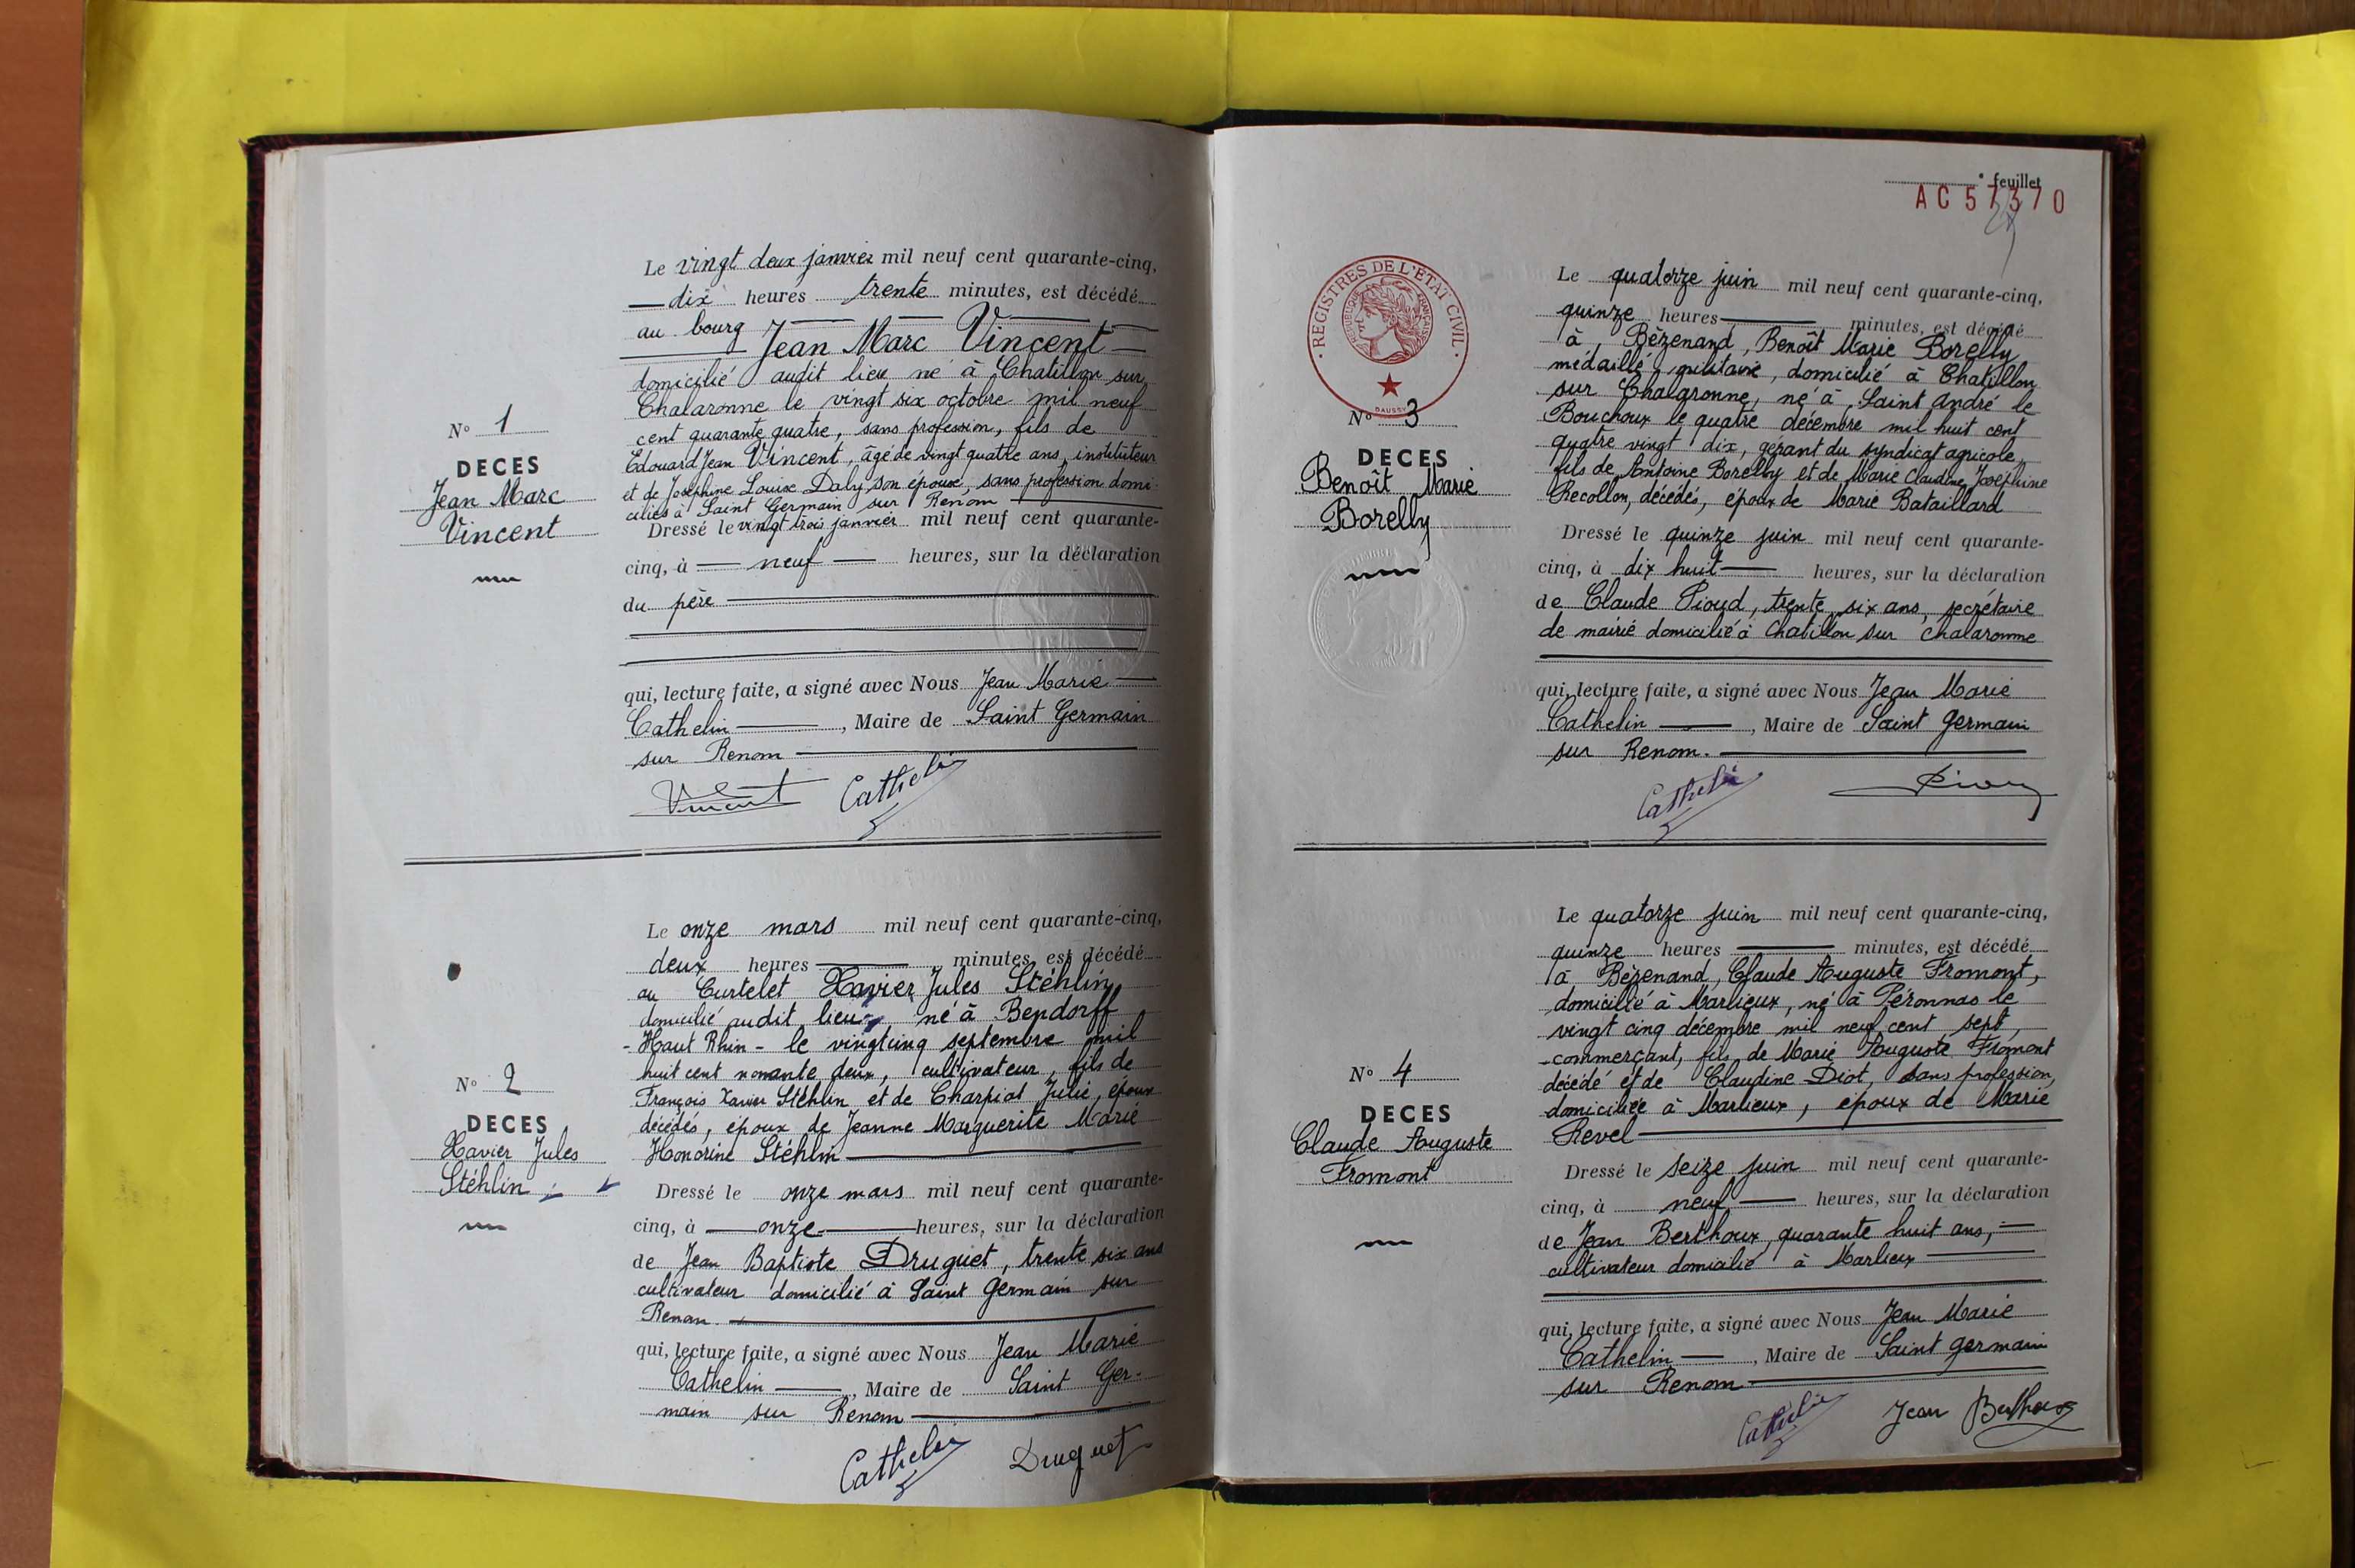 Le vingt deux janvier mil neuf cent quarante-cinq,
dix heures trente minutes, est décédé
au bourg Jean Marc Vincent
domicilié audit lieu né à Chatillon sur
Chalaronne le vingt six octobre mil neuf
cent quarante quatre, sans profession, fils de
Edouard Jean Vincent, âgé de vingt quatre ans, instituteur
et de Joséphine Louise Daly son épouse, sans profession domi-
ciliés à Saint Germain sur Renom
N° 1
DECES
Jean Marc
Vincent
Dressé le vingt trois janvier mil neuf cent quarante-
cinq, à neuf heures, sur la déclaration
du père
qui, lecture faite, a signé avec Nous Jean Marie
Cathelin, Maire de Saint Germain
sur Renom
Vincent Cathelin
Le onze mars mil neuf cent quarante-cinq,
deux heures minutes, est décédé
au Curtelet Xavier Jules Stéhlin
domicilié audit lieu, né à Bendorff
- Haut Rhin - le vingt cinq septembre mil
huit cent nonante deux, cultivateur, fils de
François Xavier Stéhlin et de Charpiat Julie, époux
décédés, époux de Jeanne Marguerite Marie
Honorine Stéhlin
N° 2
DECES
Xavier Jules
Stéhlin
Dressé le onze mars mil neuf cent quarante-
cinq, à onze heures, sur la déclaration
de Jean Baptiste Druguet, trente six ans
cultivateur domicilié à Saint Germain sur
Renom.
qui, lecture faite, a signé avec Nous Jean Marie
Cathelin, Maire de Saint Ger-
main sur Renom
Cathelin Druguet
° feuillet
AC 57370
REGISTRES DE L'ETAT CIVIL
REPUBLIQUE FRANÇAISE
DAUSSY
Le quatorze juin mil neuf cent quarante-cinq,
quinze heures minutes, est décédé
à Bézenand, Benoît Marie Borelly
médaillé militaire, domicilié à Chatillon
sur Chalaronne, né à Saint André le
Bouchoux le quatre décembre mil huit cent
quatre vingt dix, gérant du syndicat agricole,
fils de Antoine Borelly et de Marie Claudine Joséphine
Recollon, décédés, époux de Marie Bataillard
N° 3
DECES
Benoît Marie
Borelly
Dressé le quinze juin mil neuf cent quarante-
cinq, à dix huit heures, sur la déclaration
de Claude Pioud, trente six ans, secrétaire
de mairie domicilié à Chatillon sur Chalaronne
qui, lecture faite, a signé avec Nous Jean Marie
Cathelin, Maire de Saint Germain
sur Renom.
Cathelin
Le quatorze juin mil neuf cent quarante-cinq,
quinze heures minutes, est décédé
à Bézenand, Claude Auguste Fromont,
domicilié à Marlieux, né à Péronnas le
vingt cinq décembre mil neuf cent sept,
commerçant, fils de Marie Auguste Fromont
décédé et de Claudine Diot, sans profession,
domiciliée à Marlieux, époux de Marie
Revel
N° 4
DECES
Claude Auguste
Fromont
Dressé le seize juin mil neuf cent quarante-
cinq, à neuf heures, sur la déclaration
de Jean Berthoux, quarante huit ans,
cultivateur domicilié à Marlieux
qui, lecture faite, a signé avec Nous Jean Marie
Cathelin, Maire de Saint Germain
sur Renom
Cathelin Jean Berthoux